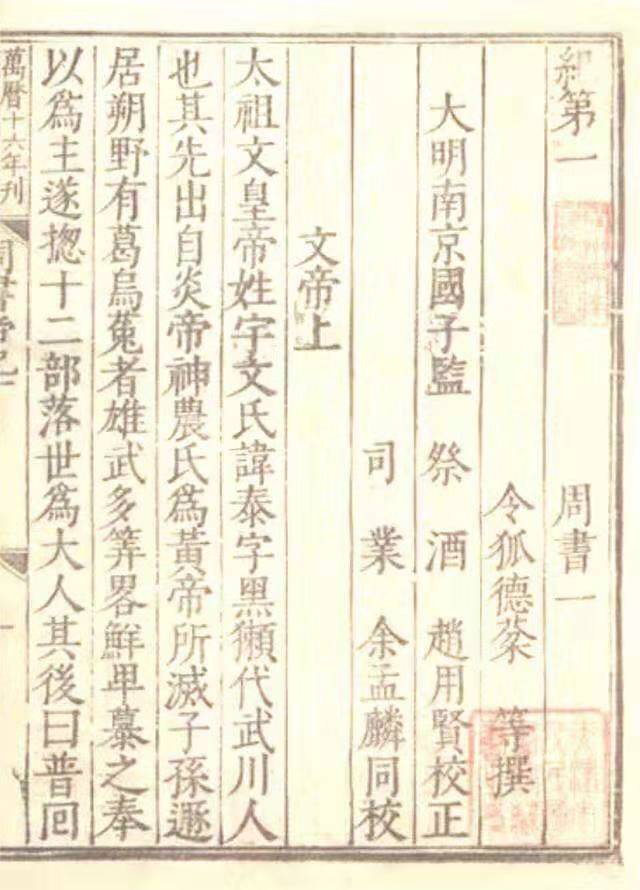 紀第一 周書一
令狐德棻 等撰
大明南京國子監 祭酒 趙用賢校正
司業 余孟麟同校
文帝上
太祖文皇帝姓宇文氏諱泰字黑獺代武川人
也其先出自炎帝神農氏爲黃帝所滅子孫遯
居朔野有葛烏菟者雄武多筭畧鮮卑慕之奉
以爲主遂揔十二部落世爲大人其後曰普回
萬曆十六年刊